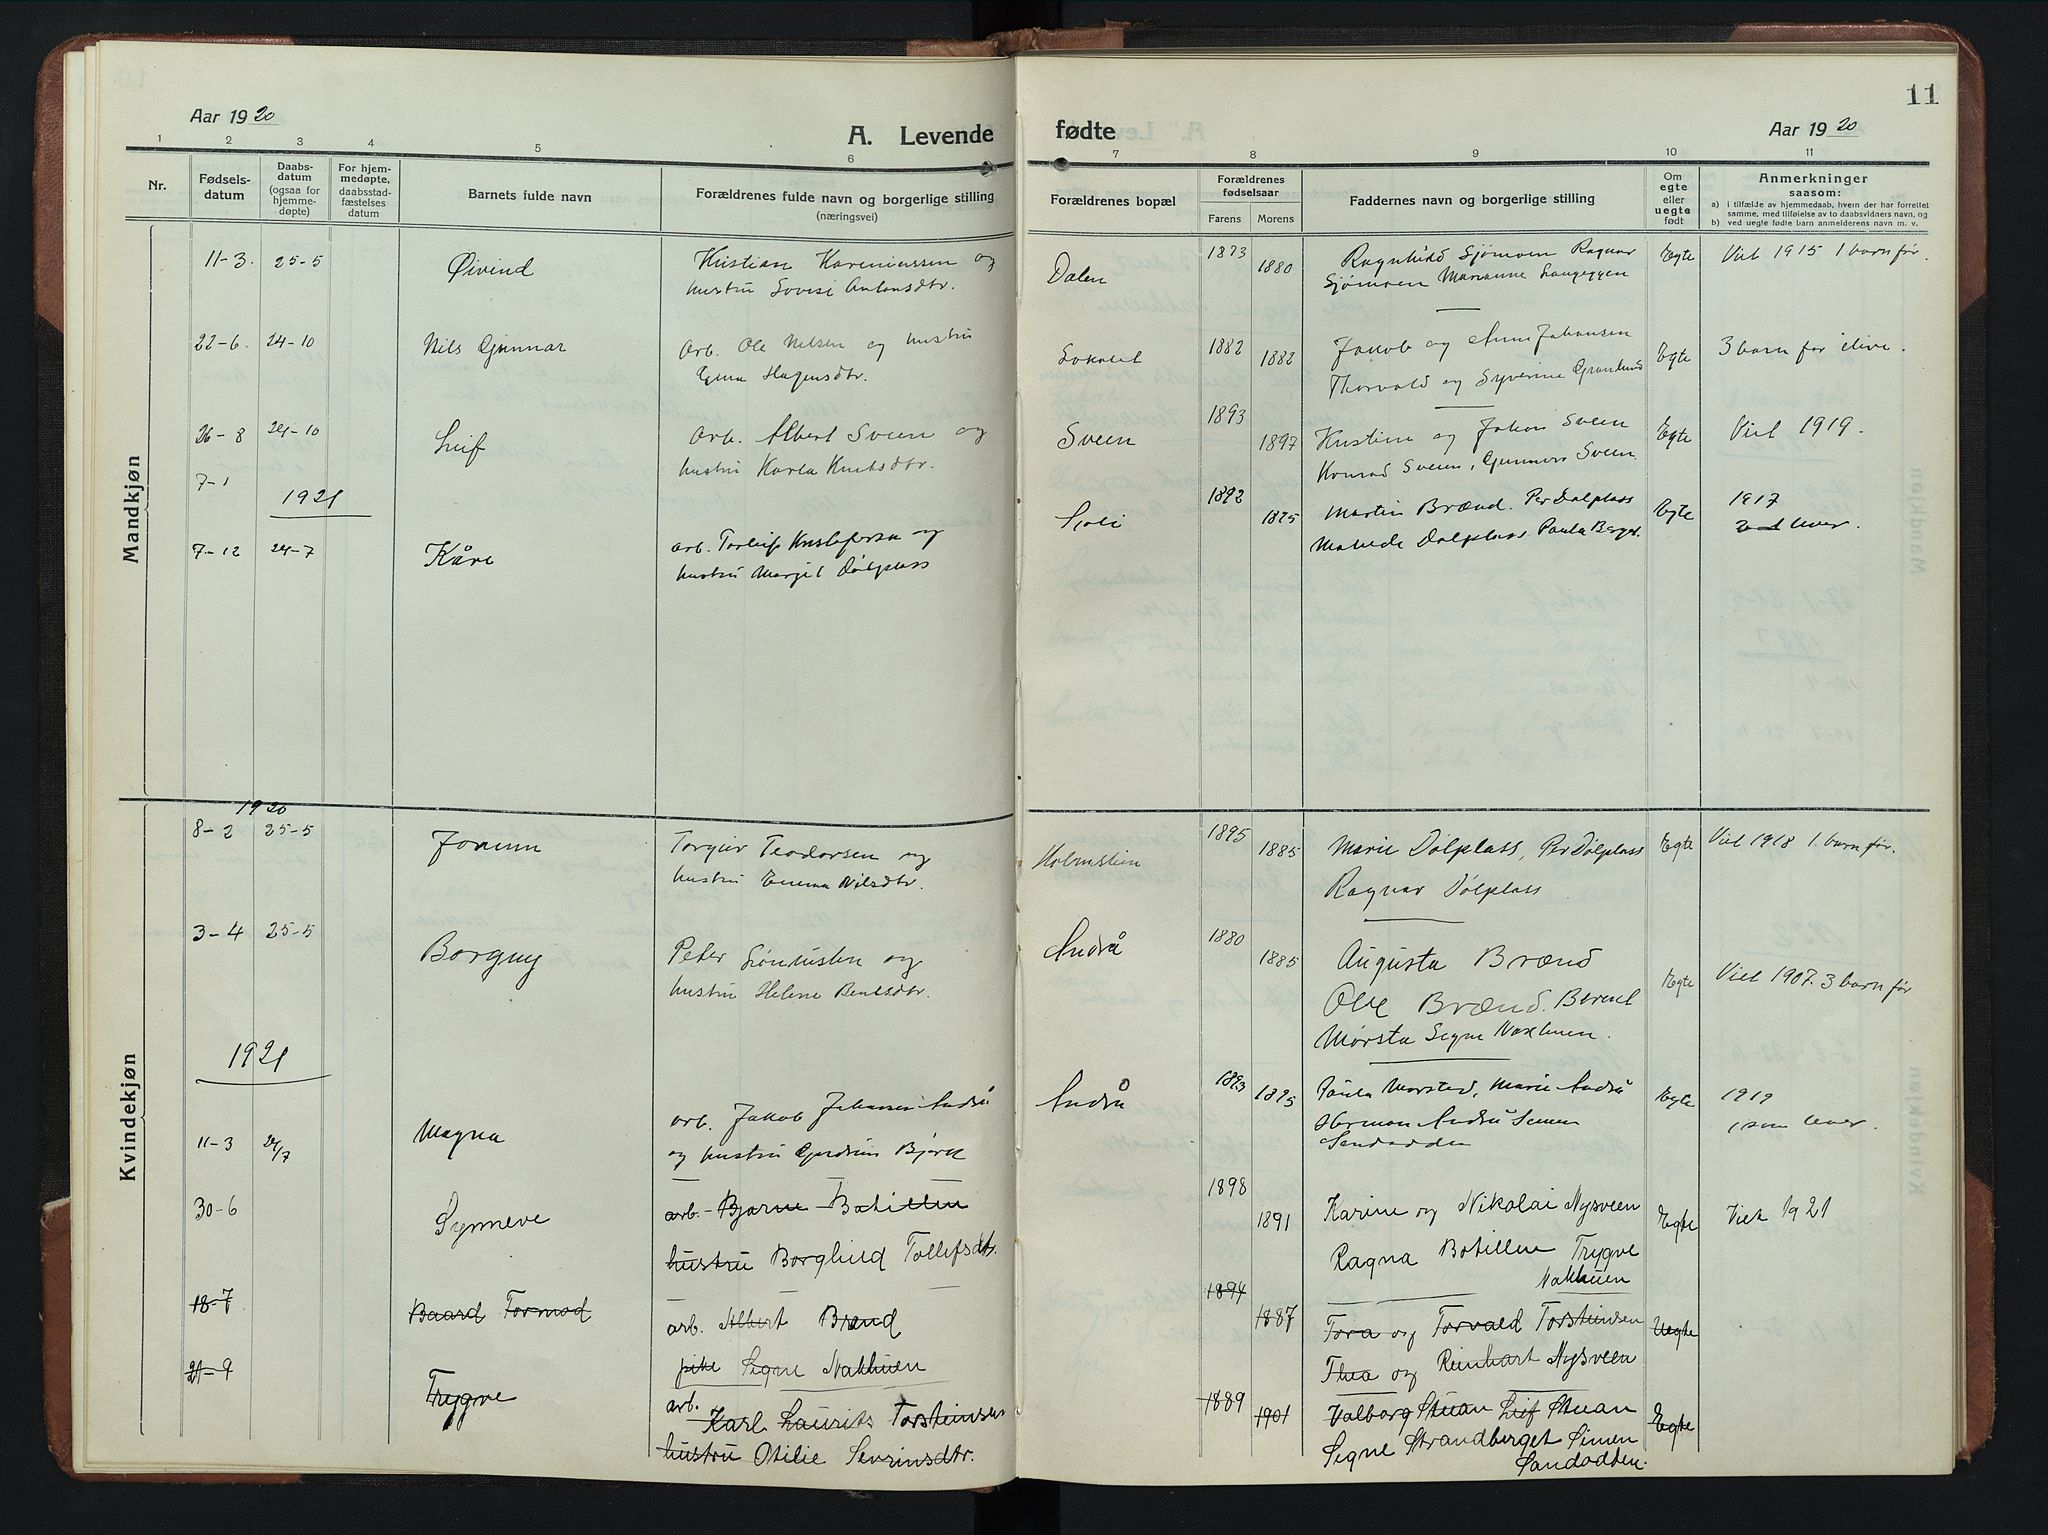 11
Aar 1920
A. Levende fødte
Aar 1920
1 2 3 4 5 6 7 8 9 10 11
Nr.
Fødsels-
datum
Daabs-
datum
(ogsaa for
hjemme-
døpte)
For hjem-
medøpte,
daabsstad-
fæstelses
datum
Barnets fulde navn
Forældrenes fulde navn og borgerlige stilling
(næringsvei)
Forældrenes bopæl
Forældrenes
fødselsaar
Farens Morens
Faddernes navn og borgerlige stilling
Om
egte
eller
uegte
født
Anmerkninger
saasom:
a) i tilfælde av hjemmedaab, hvem der har forrettet
samme, med tilføielse av to daabsvidners navn, og
b) ved uegte fødte barn anmelderens navn m. v.
Mandkjøn
11-3. 25-5 Øivind
Kristian og
hustru Lovise Antonsdtr.
Dalen
1873 1880
Ragnhild Sjømoen Ragnar
Sjømoen Marianne Langeggen
Egte
Viet 1915 1 barn før.
22-6. 24-10 Nils Gunnar
Arb. Ole Nilsen og hustru
Hagensdtr.
1882 1882
Jakob og Anne Johansen
Thorvald og Syverine Grønlund
Egte
3 barn før ilive.
26-8 24-10 Leif
Arb. Albert Sveen og
hustru Karla Knutsdtr.
Sveen
1893 1897
Kristine og Johan Sveen
Konrad Sveen, Gunnar Sveen.
Egte
Viet 1919.
7-1
1921
7-12 24-7 Kåre
arb. Torleif Kristofersen og
hustru Margit Dølplass
1892 1895
Martin Brænd. Per Dølplass
Dølplass Paula Berget.
Egte
1917
lever.
Kvindekjøn
1920
8-2 25-5 Jorunn
Torgeir Teodorsen og
hustru Emma Nilsdtr.
Holmstien
1895 1885
Marie Dølplass, Per Dølplass
Ragnar Dølplass
Egte
Viet 1918 1. barn før.
3-4 25-5 Borgny
Peter og
hustru Helene Berntsdtr.
Andrå
1880 1885
Augusta Brænd
Ole Brænd. Bernt
Mørsta Signe Nakhuen.
Egte
Viet 1907. 3 barn før
1921
11-3 24/7 Magna
arb. Jakob Johansen Andrå
og hustru Gudrun Bjørk
Andrå
1893 1895
Paula Morsted, Marie Andrå
Herman Andrå Simen
Sandodden
Egte
1919
1 som lever.
30-6 Synneve
arb. Bjarne Botillen
hustru Borghild Tollefsdtr.
1898 1891
Karine og Nikolai Nysveen
Ragna Botillen Trygve
Nakhuen
Egte
Viet 1921
18-7 Baard Tormod
arb. Albert Brænd
pike Signe Nakhuen
1894 1887
Tora og Torvald Torsteinsen
Thea og Reinhart Nysveen
Uegte
21-9 Trygve
arb.
Karl Laurits Torsteinsen
hustru Otilie Sevrinsdtr.
1889 1901
Valborg Stuan Leif Stuan
Signe Strandberget Simen
Sandodden.
Egte